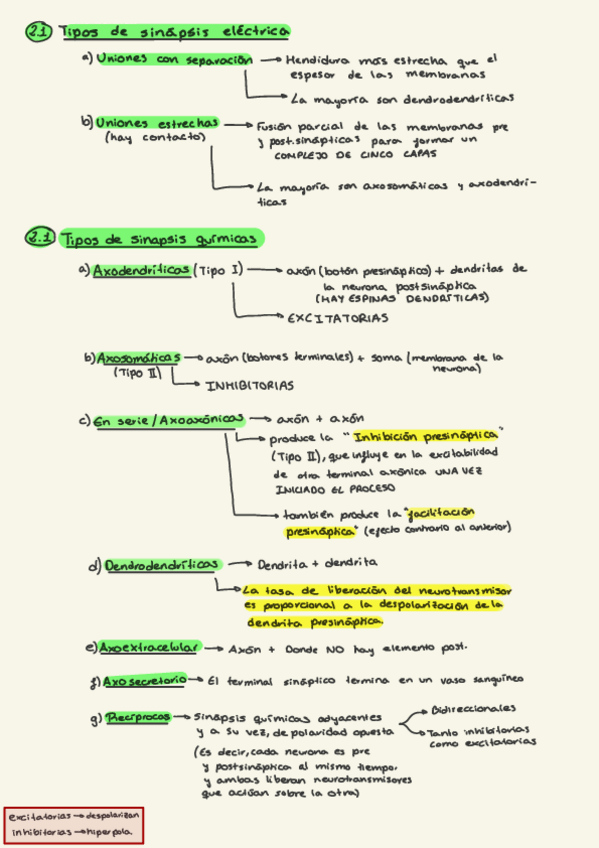 2.1 Tipos de sinápsis eléctrica
a) Uniones con separación → Hendidura más estrecha que el
espesor de las membranas
→ La mayoría son dendrodendríticas
b) Uniones estrechas → Fusión parcial de las membranas pre
(hay contacto) y post.sinápticas para formar un
COMPLEJO DE CINCO CAPAS
→ La mayoría son axosomáticas y axodendrí-
ticas
2.1 Tipos de sinapsis químicas
a) Axodendríticas (Tipo I) → axón (botón presináptico) + dendritas de
la neurona postsináptica
(HAY ESPINAS DENDRÍTICAS)
→ EXCITATORIAS
b) Axosomáticas → axón (botones terminales) + soma (membrana de la
(Tipo II) neurona)
→ INHIBITORIAS
c) En serie / Axoaxónicas → axón + axón
→ produce la "Inhibición presináptica"
(Tipo II), que influye en la excitabilidad
de otra terminal axónica UNA VEZ
INICIADO EL PROCESO
→ también produce la "facilitación
presináptica" (efecto contrario al anterior)
d) Dendrodendríticas → Dendrita + dendrita
→ La tasa de liberación del neurotransmisor
es proporcional a la despolarización de la
dendrita presináptica.
e) Axoextracelular → Axón + Donde NO hay elemento post.
f) Axosecretorio → El terminal sináptico termina en un vaso sanguíneo
g) Recíprocos → Sinápsis químicas adyacentes → Bidireccionales
y a su vez, de polaridad opuesta → Tanto inhibitorias
como excitatorias
(Es decir, cada neurona es pre
y postsináptica al mismo tiempo.
y ambas liberan neurotransmisores
que actúan sobre la otra)
excitatorias → despolarizan
inhibitorias → hiperpola.